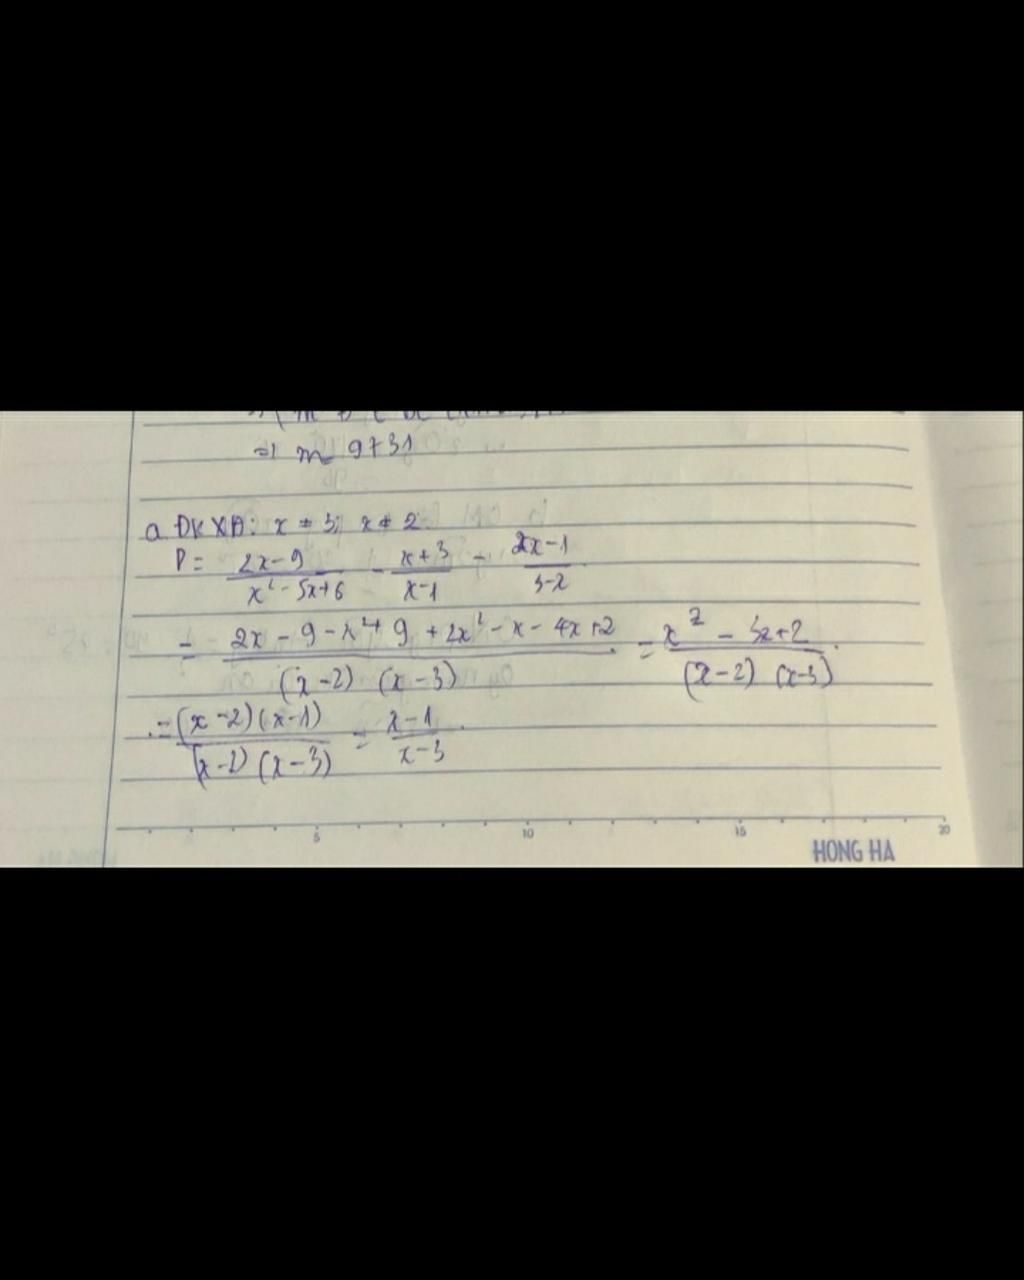 => m = 9731
a. ĐKXĐ: x ≠ 3; x ≠ 2
P = (2x-9)/(x²-5x+6) - (x+3)/(x-1) - (2x-1)/(3-x)
= (2x - 9 - x² + 9 + 2x² - x - 4x + 2)/((x-2) (x-3)) = (x² - 3x+2)/((x-2) (x-3)).
= ((x-2)(x-1))/((x-2)(x-3)) = (x-1)/(x-3).
5 10 15 20
HONG HA